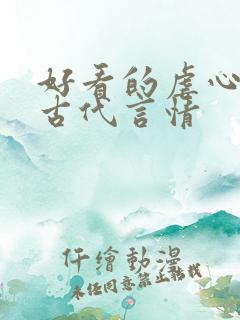 好看的虐心
古代言情
仟繪動漫
未经同意禁止转载